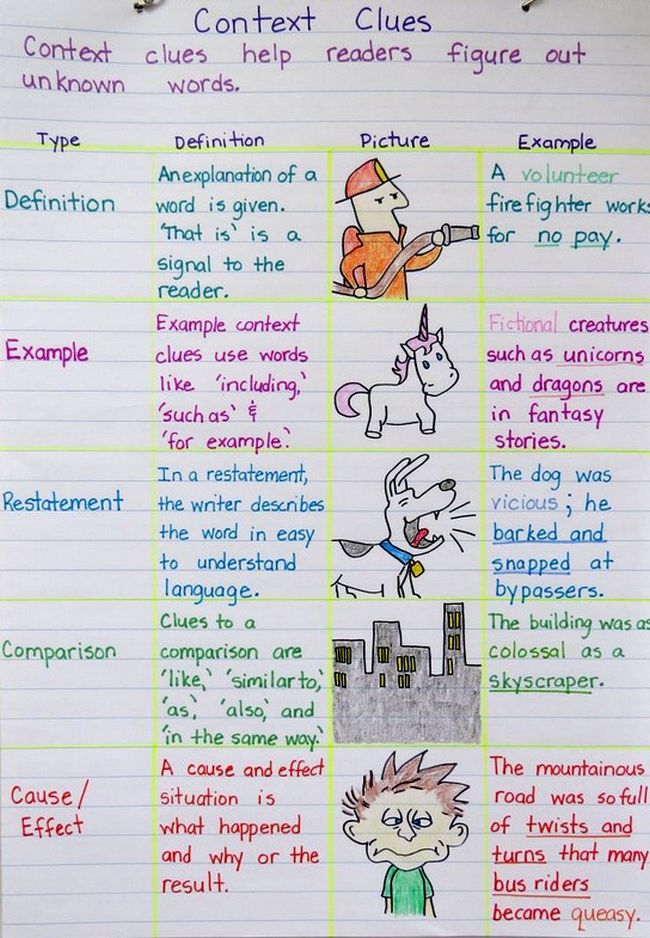 Context Clues
Context clues help readers figure out
unknown words.
Type Definition Picture Example
Definition
An explanation of a
word is given.
'That is' is a
signal to the
reader.
A volunteer
firefighter works
for no pay.
Example
Example context
clues use words
like 'including,'
'such as' &
'for example.'
Fictional creatures
such as unicorns
and dragons are
in fantasy
stories.
Restatement
In a restatement,
the writer describes
the word in easy
to understand
language.
The dog was
vicious; he
barked and
snapped at
bypassers.
Comparison
Clues to a
comparison are
'like,' 'similar to,'
'as,' 'also,' and
'in the same way.'
The building was as
colossal as a
skyscraper.
Cause/
Effect
A cause and effect
situation is
what happened
and why or the
result.
The mountainous
road was so full
of twists and
turns that many
bus riders
became queasy.